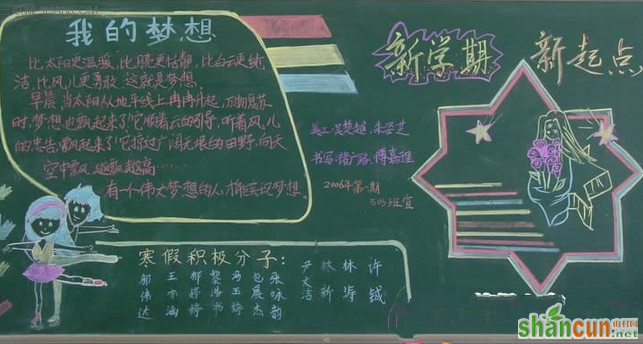 我的梦想
比太阳更温暖,比月亮更恬静,比白云更纯
洁,比风儿更勇敢,这就是梦想。
早晨,当太阳从地平线上冉冉升起,万物复苏
时,梦想也飘起来了!它顺着云的引导,听着风儿
的忠告,飘起来了!它掠过广阔无垠的田野,向天
空中飘,越飘越高……
有一个伟大梦想的人才能实现梦想。
寒假积极分子:
邬 王 邹 黎 冯 包 张
伟 亦 婷 浩 玉 晨 咏
达 涵 婷 书 婷 杰 韵
尹 林 林 许
文
洁 新 涛 钺
新学期
新起点
美工:
书写:
2006年第一期
503班宣
shancun
.net